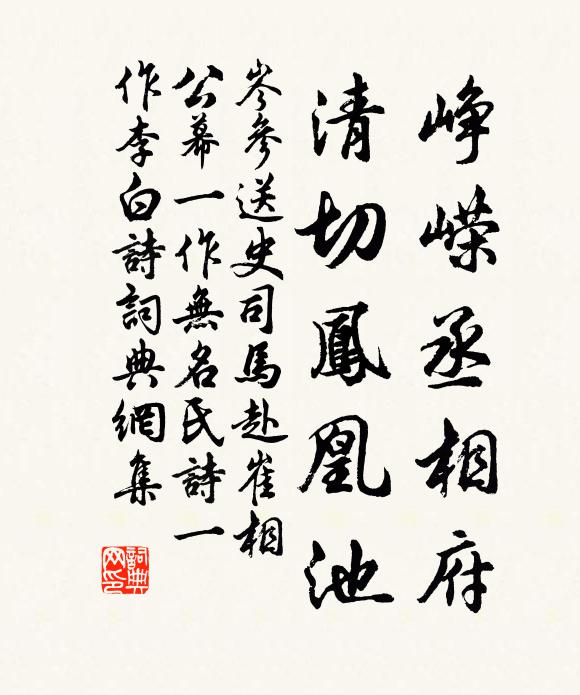 峥嵘丞相府
清切鳳凰池
岑參送史司馬赴崔相
公幕一作無名氏詩一
作李白詩詞典網集
詞典
网印